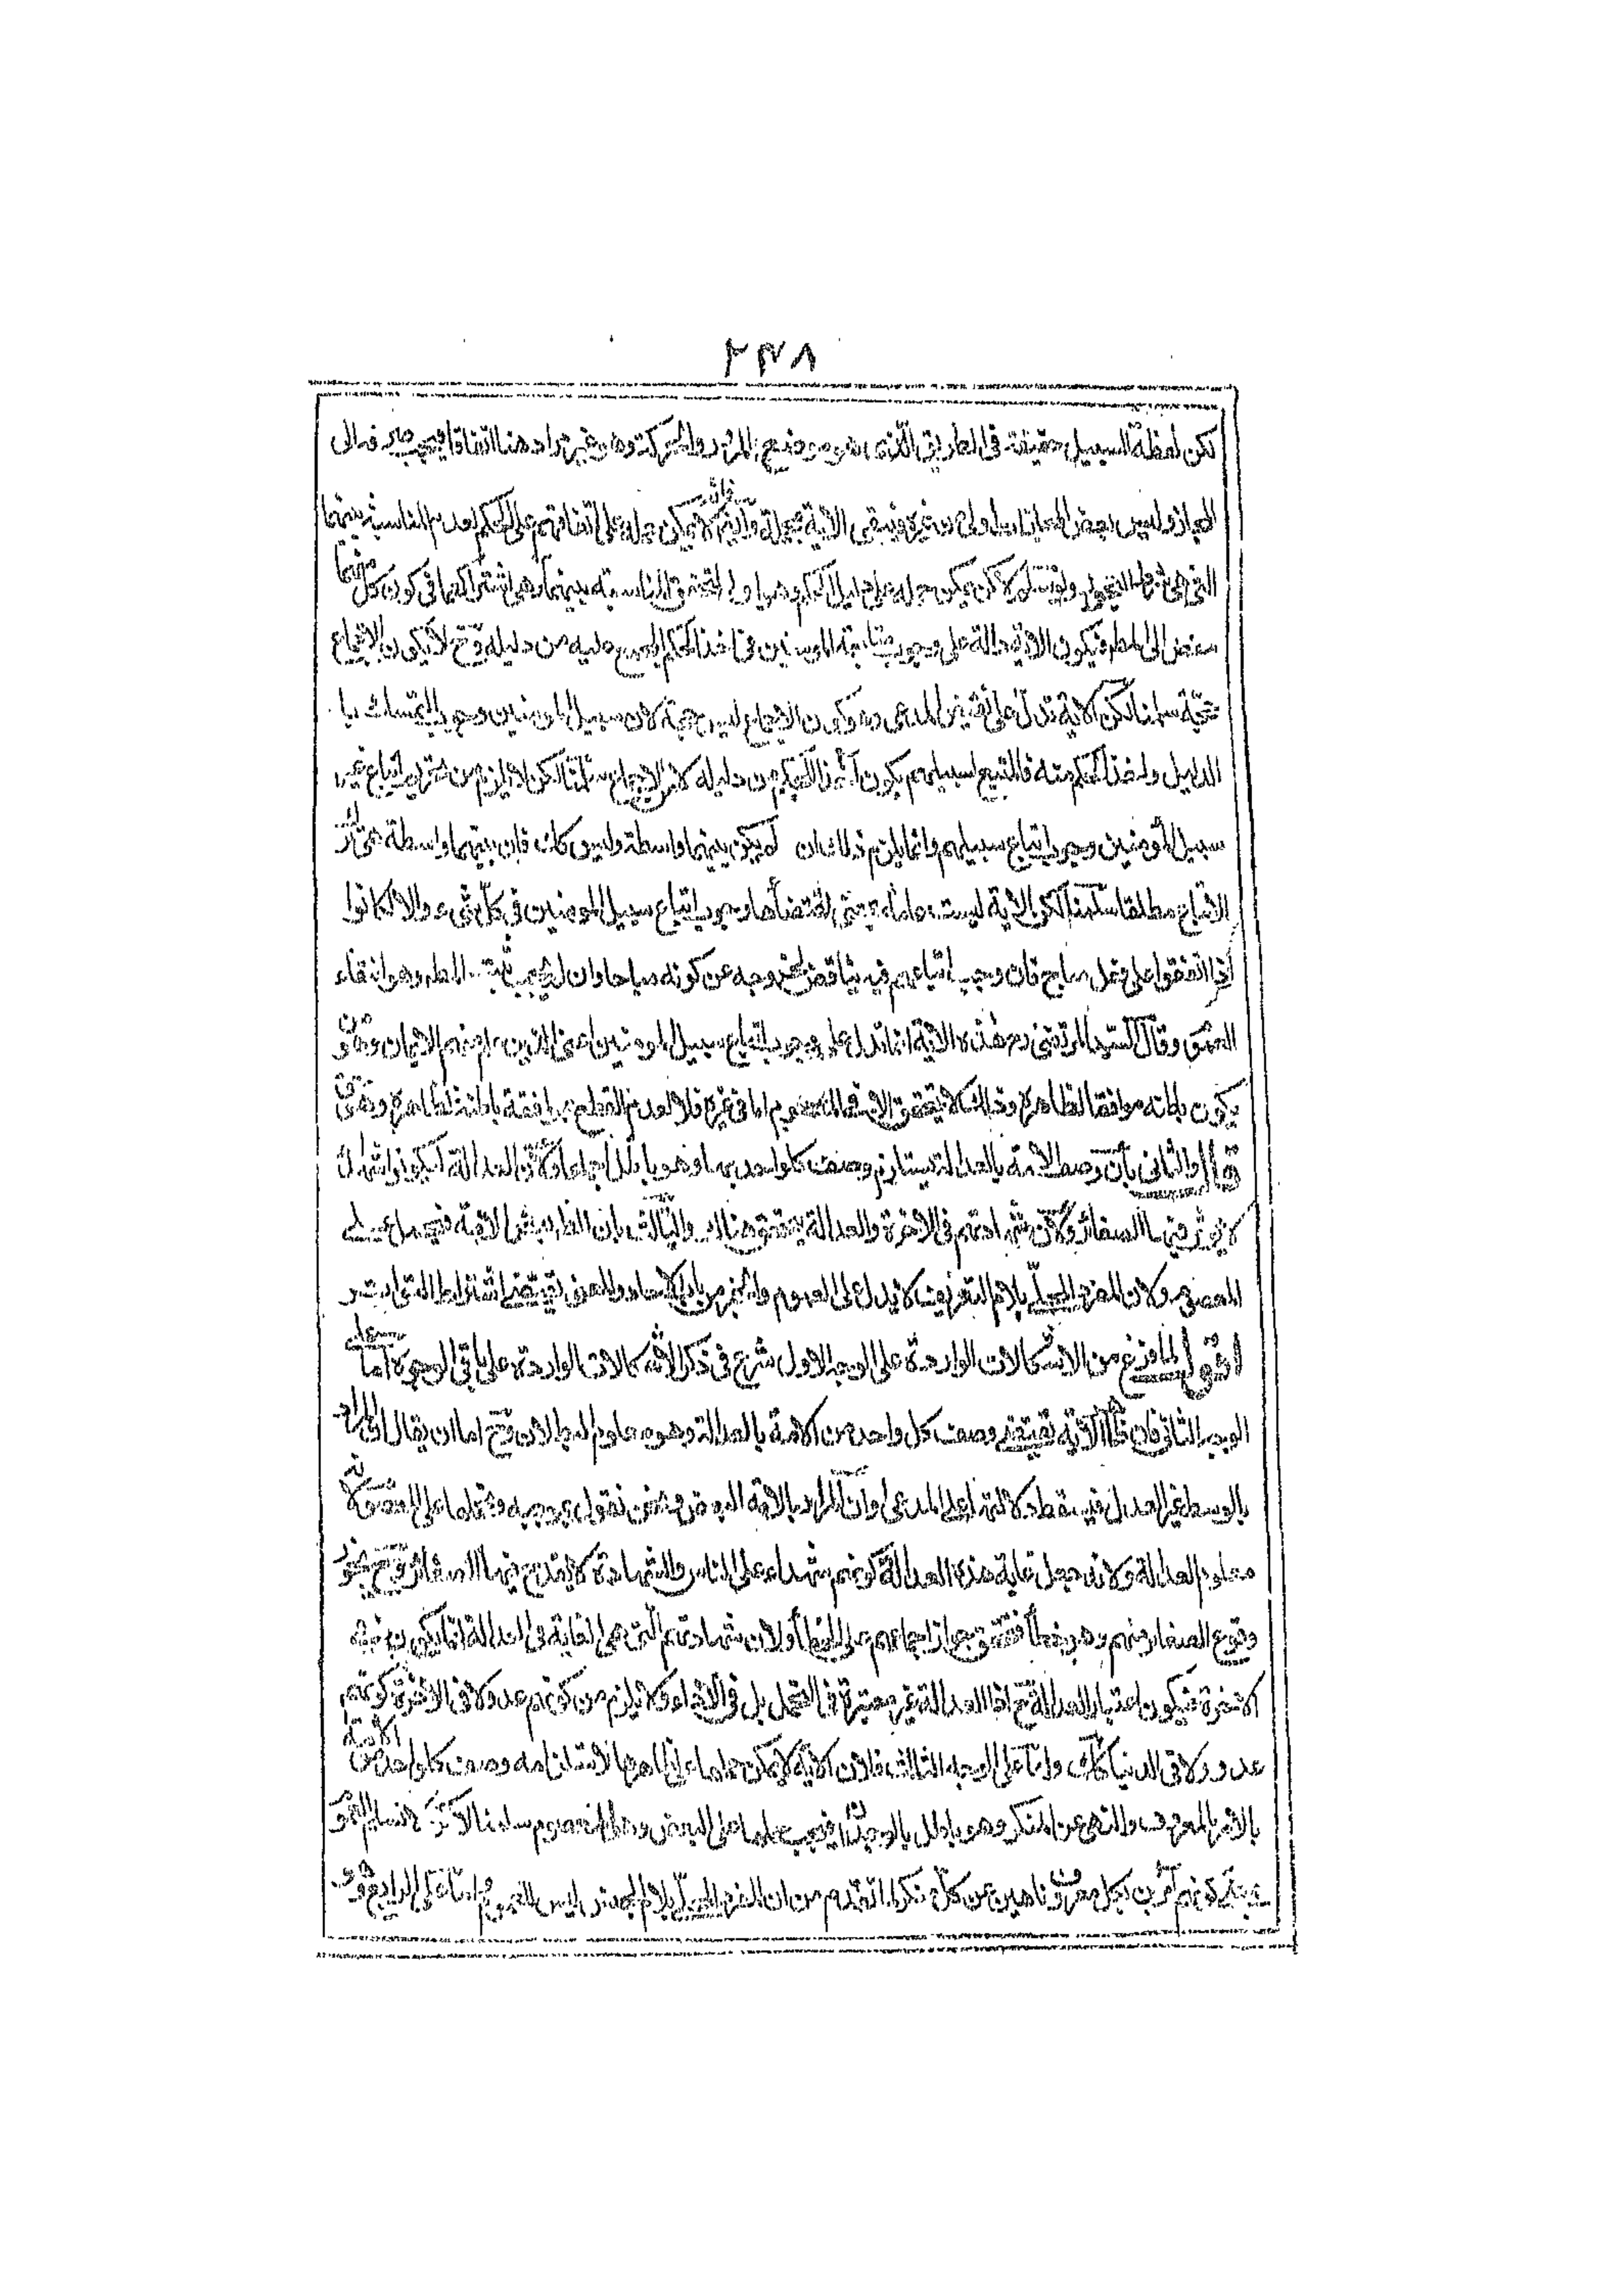 ٢٣٨
لكن لفظة السبيل حقيقة فى الطريق الذى هو موضع المرور والحركة وهو غير مراد هنا اتفاقا فيجب صرفه الى
المجاز وليس بعض المجازات اولى من غيره فتبقى الاية مجملة وايضا فانه لا يمكن حمله على اتفاقهم على الحكم لعدم المناسبة بينهما
التى هى شرط التجوز ولو سلم لكن يمكن حمله على دليل الحكم وهو اولى لتحقق المناسبة بينهما وهى اشتراكهما فى كون كل منهما
مفض الى المط فيكون الاية دالة على وجوب متابعة المومنين فى اخذ الحكم المجمع عليه من دليله وح لا يكون الاجماع
حجة سلمنا لكن الاية تدل على نقيض المدعى وهو كون الاجماع ليس حجة لان سبيل المومنين وجوب التمسك با
الدليل واخذ الحكم منه فالمتبع لسبيلهم يكون آخذا للحكم من دليله لا من الاجماع سلمنا لكن لا يلزم من تحريم اتباع غير
سبيل المومنين وجوب اتباع سبيلهم وانما يلزم ذلك ان لم يكن بينهما واسطة وليس كك فان بينهما واسطة هى ترك
الاتباع مطلقا سلمنا لكن الاية ليست عامة بمعنى اقتضائها وجوب اتباع سبيل المومنين فى كل شىء والا لكانوا
اذا اتفقوا على فعل مباح فان وجب اتباعهم فيه تناقض لخروجه عن كونه مباحا وان لم يجب ثبت المط وهو انتفاء
العموم وقال السيد المرتضى ره هذه الاية انما تدل على وجوب اتباع سبيل المومنين اعنى الذين علم منهم الايمان
يكون باطنه موافقا لظاهره وذلك لا يتحقق الا فى المعصوم اما فى غيره فلا لعدم القطع بموافقة باطنه لظاهره
قال والثانى بان وصف الامة بالعدالة يستلزم وصف كل واحد بها وهو باطل اجماعا ولان العدالة
لا يؤثر فيها الصغائر ولان شهادتهم فى الاخرة والعدالة يتحقق هناك والثالث بان الظ يبشر الامة فيحمل على
المعصوم ولان المفرد المحلى بلام التعريف لا يدل على العموم والخبر من باب الاحاد والمعنى يقتضى اشتراط
اقول لما فرغ من الاشكالات الواردة على الوجه الاول شرع فى ذكر الاشكالات الواردة على باقى الوجوه اما على
الوجه الثانى فان ظاهر الاية تقتضى وصف كل واحد من الامة بالعدالة وهو معلوم البطلان وح اما ان يقال المراد
بالوسط غير العدل فيسقط دلالتها على المدعى او ان المراد بالامة البعض ونحن نقول بموجبه ونحملها على المعصوم لانه
معلوم العدالة ولانه جعل غاية هذه العدالة كونهم شهداء على الناس والشهادة لا يقدح فيها الصغائر وح يجوز
وقوع الصغائر منهم وهو خطأ فتحقق جواز اجماعهم على الخطأ ولان شهادتهم التى هى الغاية فى العدالة انما يكون فى
الاخرة فيكون اعتبار العدالة ح اذ العدالة غير معتبرة فى التحمل بل فى الاداء ولا يلزم من كونهم عدولا فى الاخرة كونهم
عدولا فى الدنيا كك واما على الوجه الثالث فلان الاية لا يمكن حملها على ظاهرها لاستلزامه وصف كل واحد من الامة
بالامر بالمعروف والنهى عن المنكر وهو باطل بالوجدان فيجب حملها على البعض وهو المعصوم سلمنا لكن لا نسلم العموم
بمعنى كونهم آمرين بكل معروف وناهين عن كل منكر لما تقدم من ان المفرد المحلى بلام الجنس ليس للعموم واما على الرابع